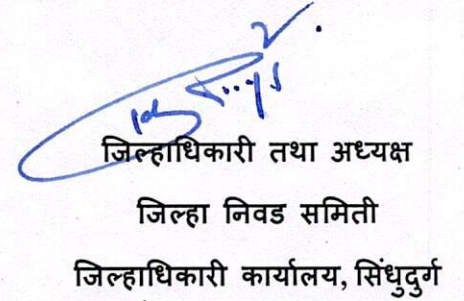 जिल्हाधिकारी तथा अध्यक्ष
जिल्हा निवड समिती
जिल्हाधिकारी कार्यालय, सिंधुदुर्ग